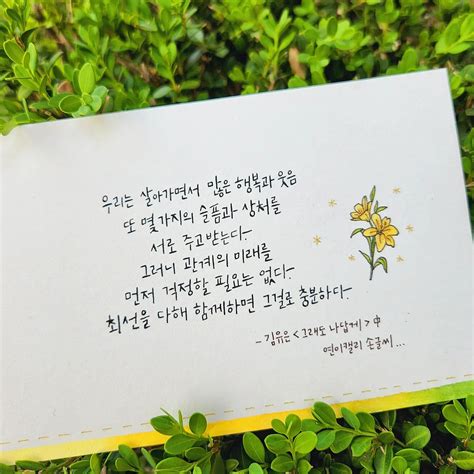 우리는 살아가면서 많은 행복과 웃음
또 몇가지의 슬픔과 상처를
서로 주고받는다.
그러니 관계의 미래를
먼저 걱정할 필요는 없다.
최선을 다해 함께하면 그걸로 충분하다.
- 김유은 <그래도 나답게> 中
연이캘리 손글씨...